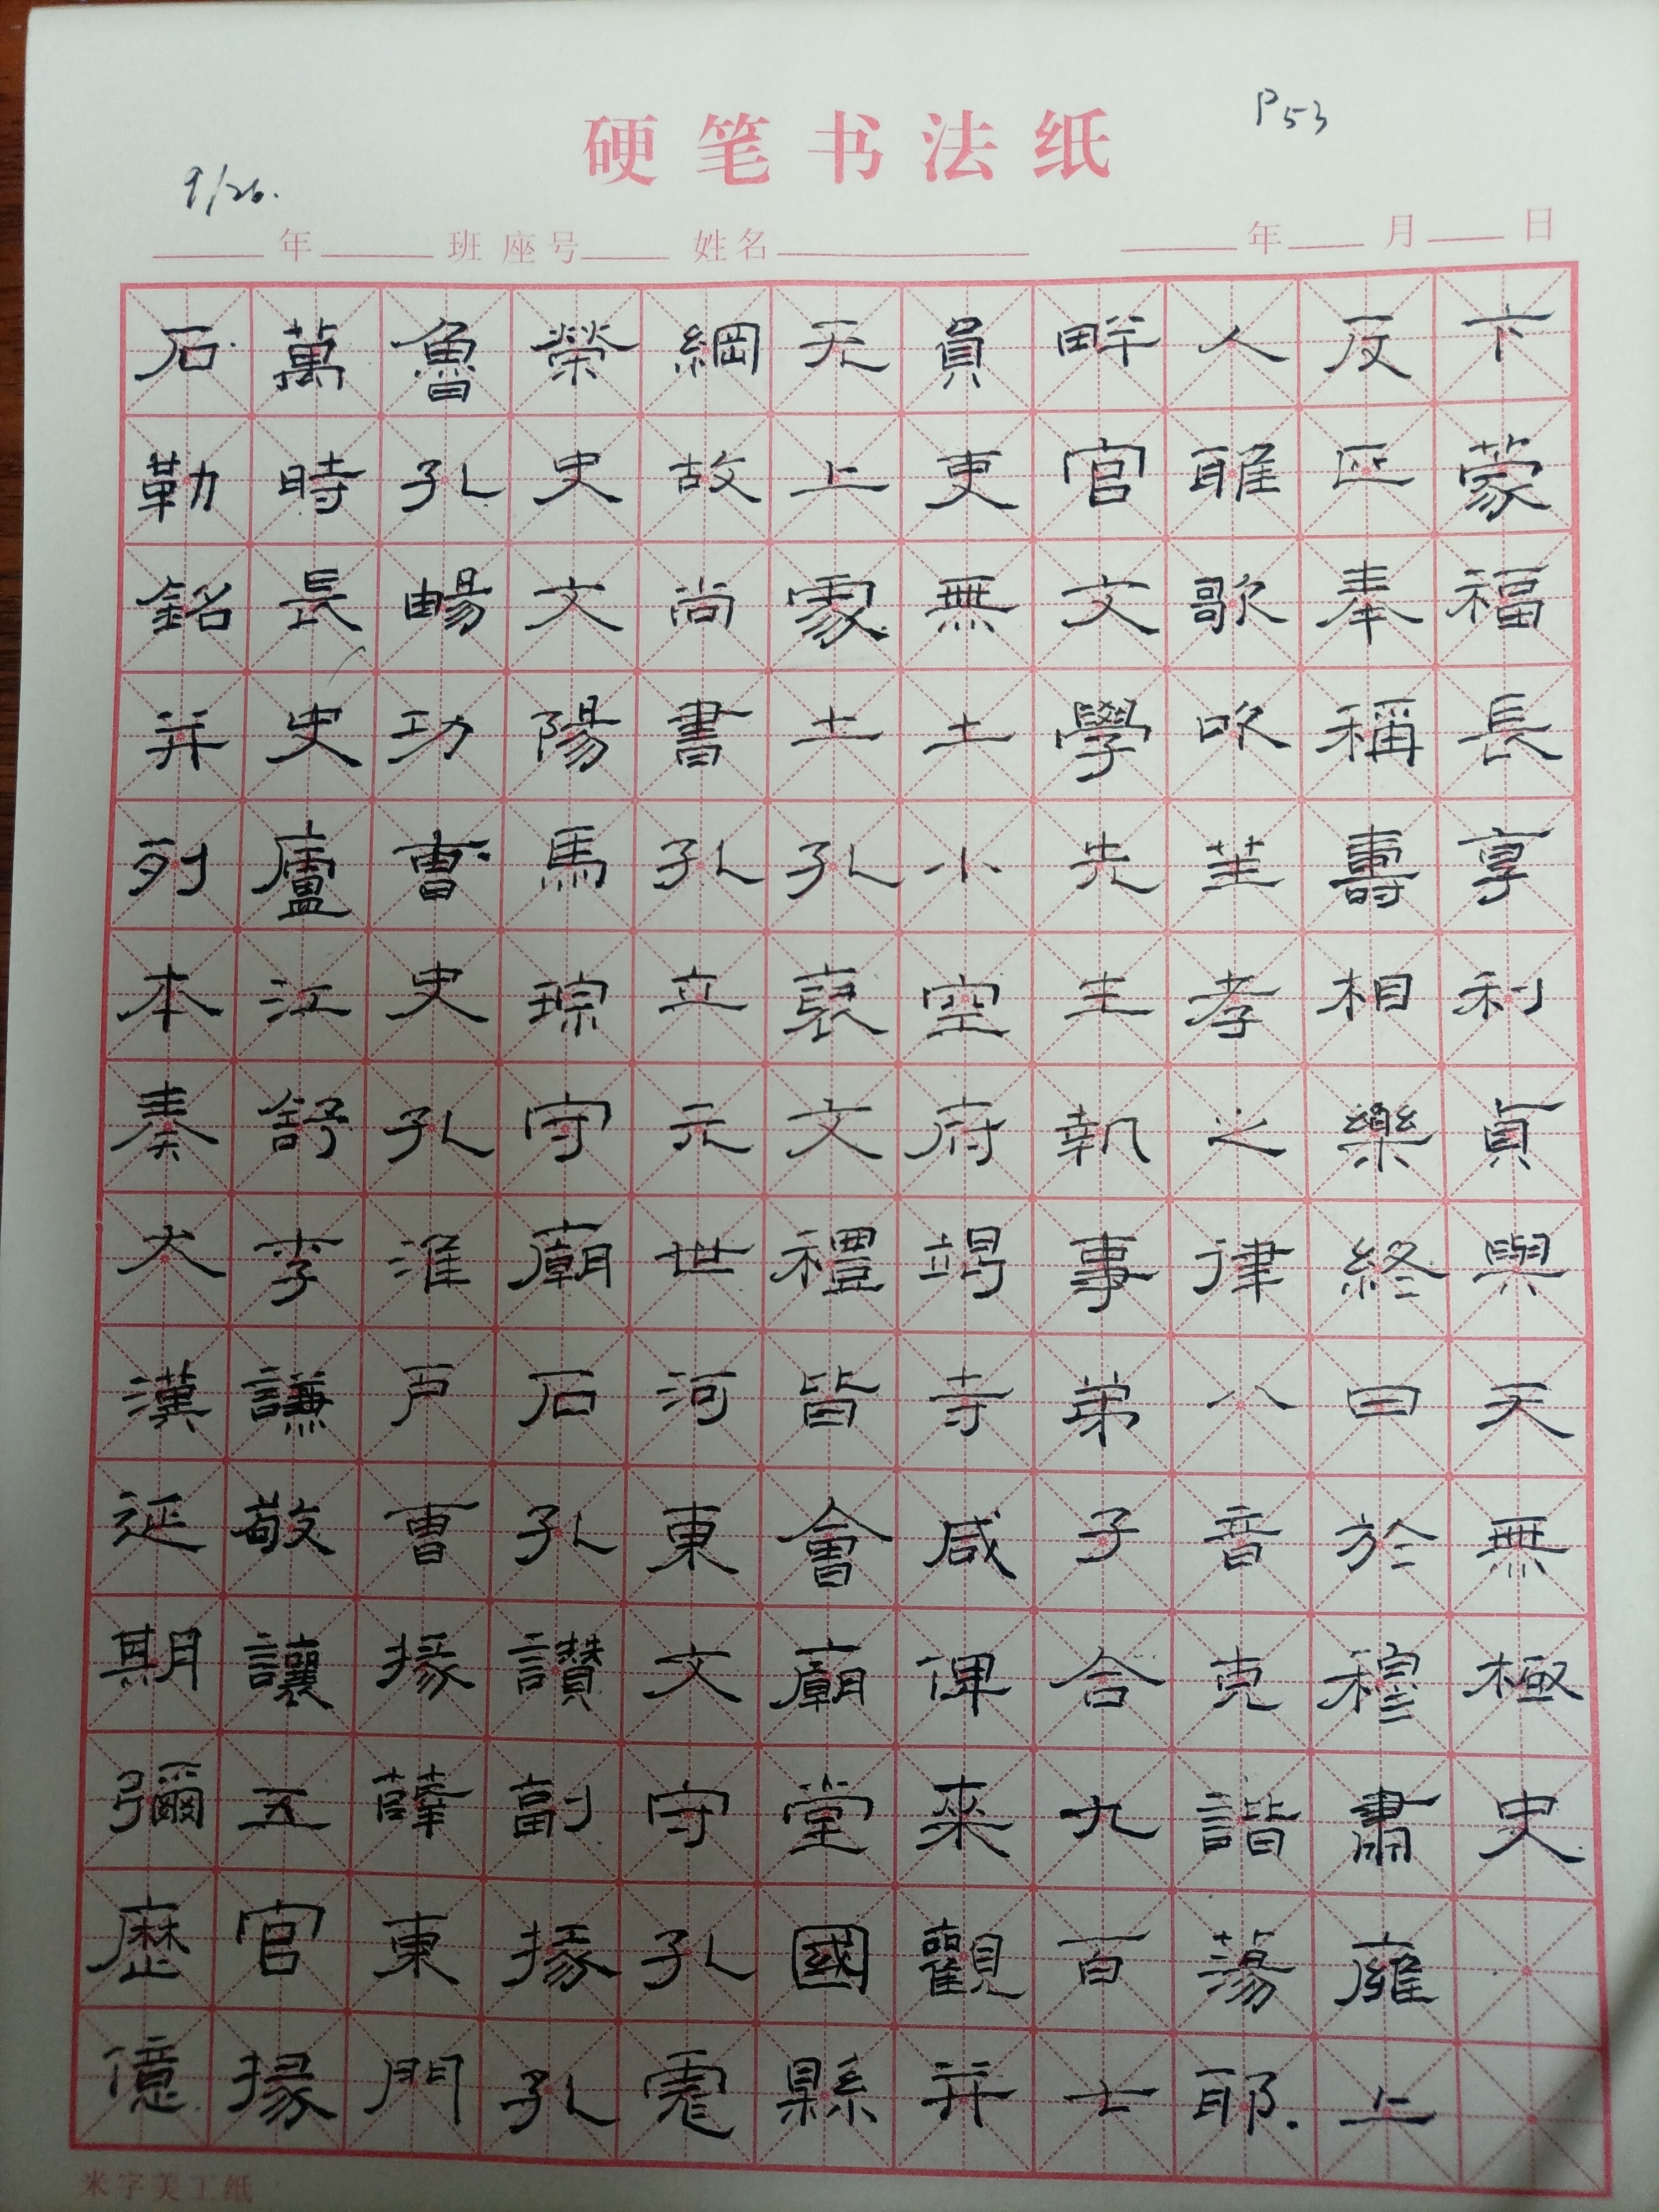 硬笔书法纸
P53
9/26.
年 班 座号 姓名 年 月 日
石勒銘并列本奏大漢延期彌歷億
萬時長史廬江舒李謙敬讓五官掾
魯孔暢功曹史孔淮戶曹掾薛東門
榮史文陽馬琮守廟石孔讚副掾孔
綱故尚書孔立元世河東文守孔
无上處土孔褒文禮皆會廟堂國縣
員吏無土小空府竭寺咸俾來觀并
畔官文學先生執事弟子合九百七
人雅歌吹笙孝之律八音克諧蕩耶
反匝奉稱壽相樂終曰於穆肅雍上
下蒙福長享利貞與天無極史
米字美工纸